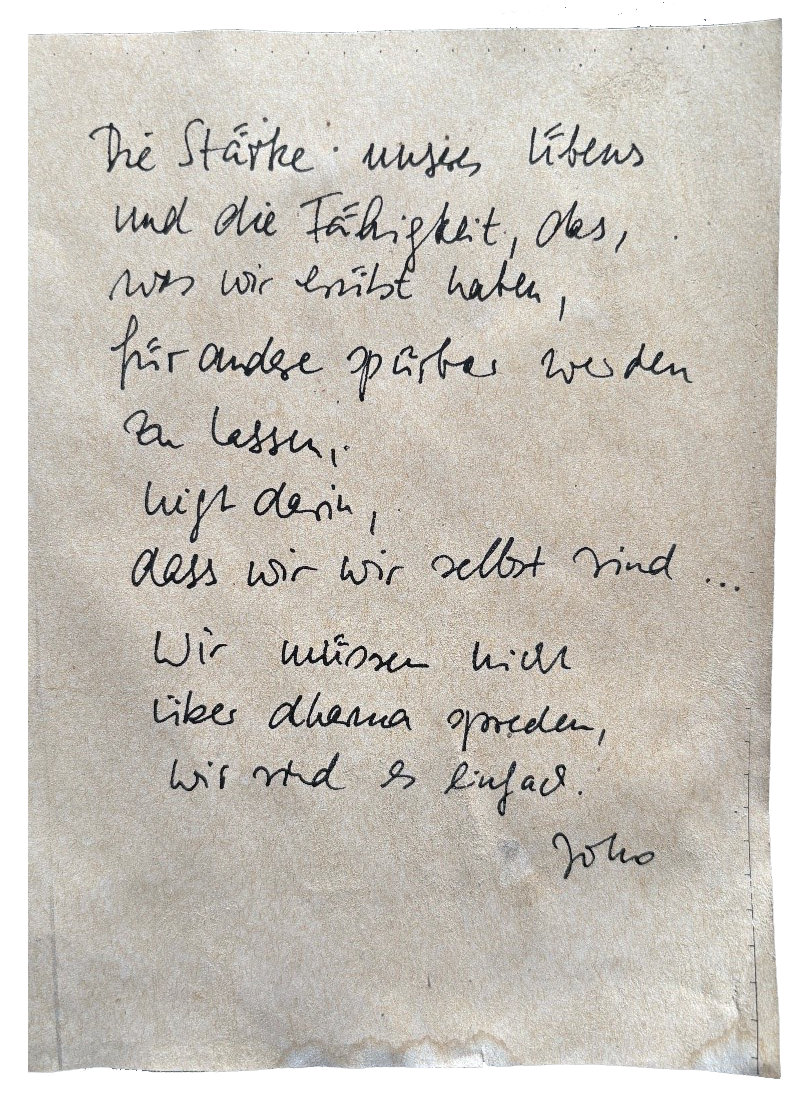 Die Stärke unseres Übens
und die Fähigkeit, das,
was wir erübt haben,
für andere spürbar werden
zu lassen,
liegt darin,
dass wir wir selbst sind ...
Wir müssen nicht
über dharma sprechen,
wir sind es einfach.
Joko